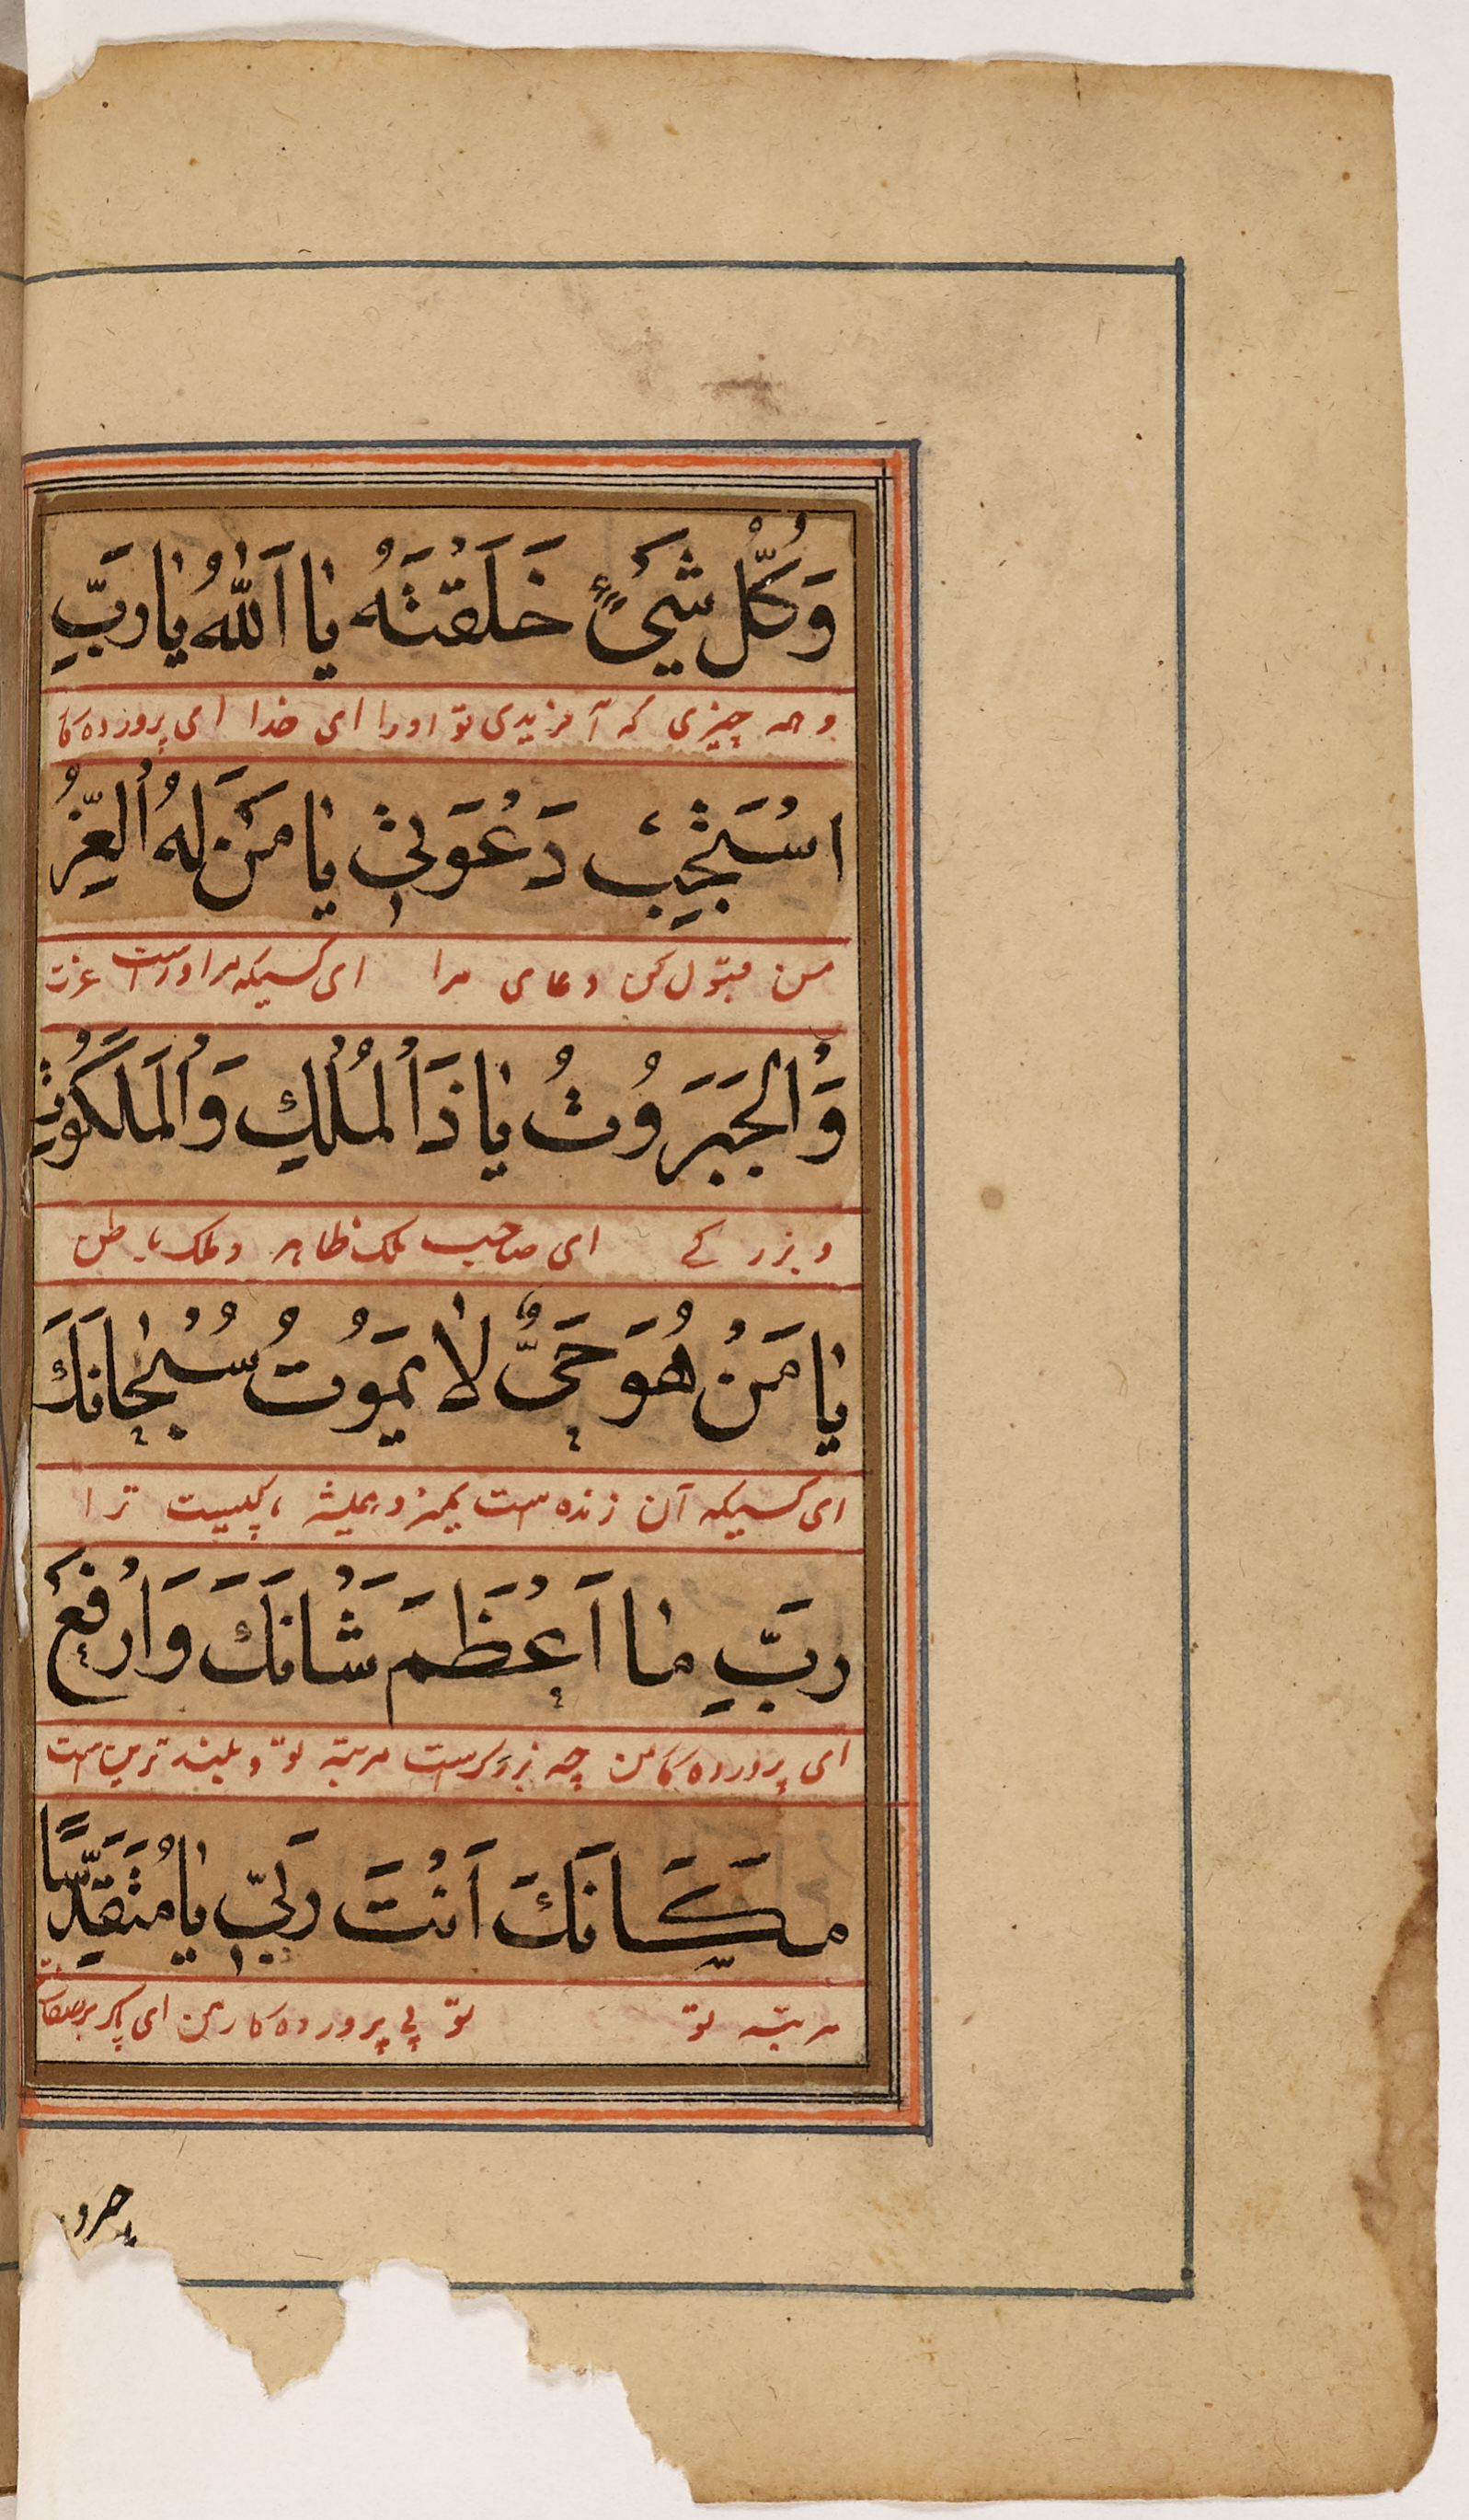 وَكُلُّ شَيْءٍ خَلَقْتَهُ يَا اَللّٰهُ يَا رَبِّ
و همه چیزی که آفریدی تو اورا ای خدا ای پرورده کا
اسْتَجِيبْ دَعْوَتِي يَا مَنْ لَهُ الْعِزُّ
من قبول کن دعای مرا ای کسیکه مراوراست عزت
وَالْجَبَرُوتُ يَا ذَا الْمُلْكِ وَالْمَلَكُوتِ
و بزرکے ای صاحب ملک ظاهر و ملک باطن
يَا مَنْ هُوَ حَيٌّ لَا يَمُوتُ سُبْحَانَكَ
ای کسیکه آن زنده است نمیرد همیشه پاکیست ترا
رَبِّ مَا اَعْظَمَ شَانَكَ وَاَرْفَعَ
ای پرورده کا من چه بزرکست مرتبه تو و بلند ترین است
مَكَانَكَ اَنْتَ رَبِّي يَا مُتَقَدِّسًا
مرتبه تو تو یی پرورده کار من ای پاک